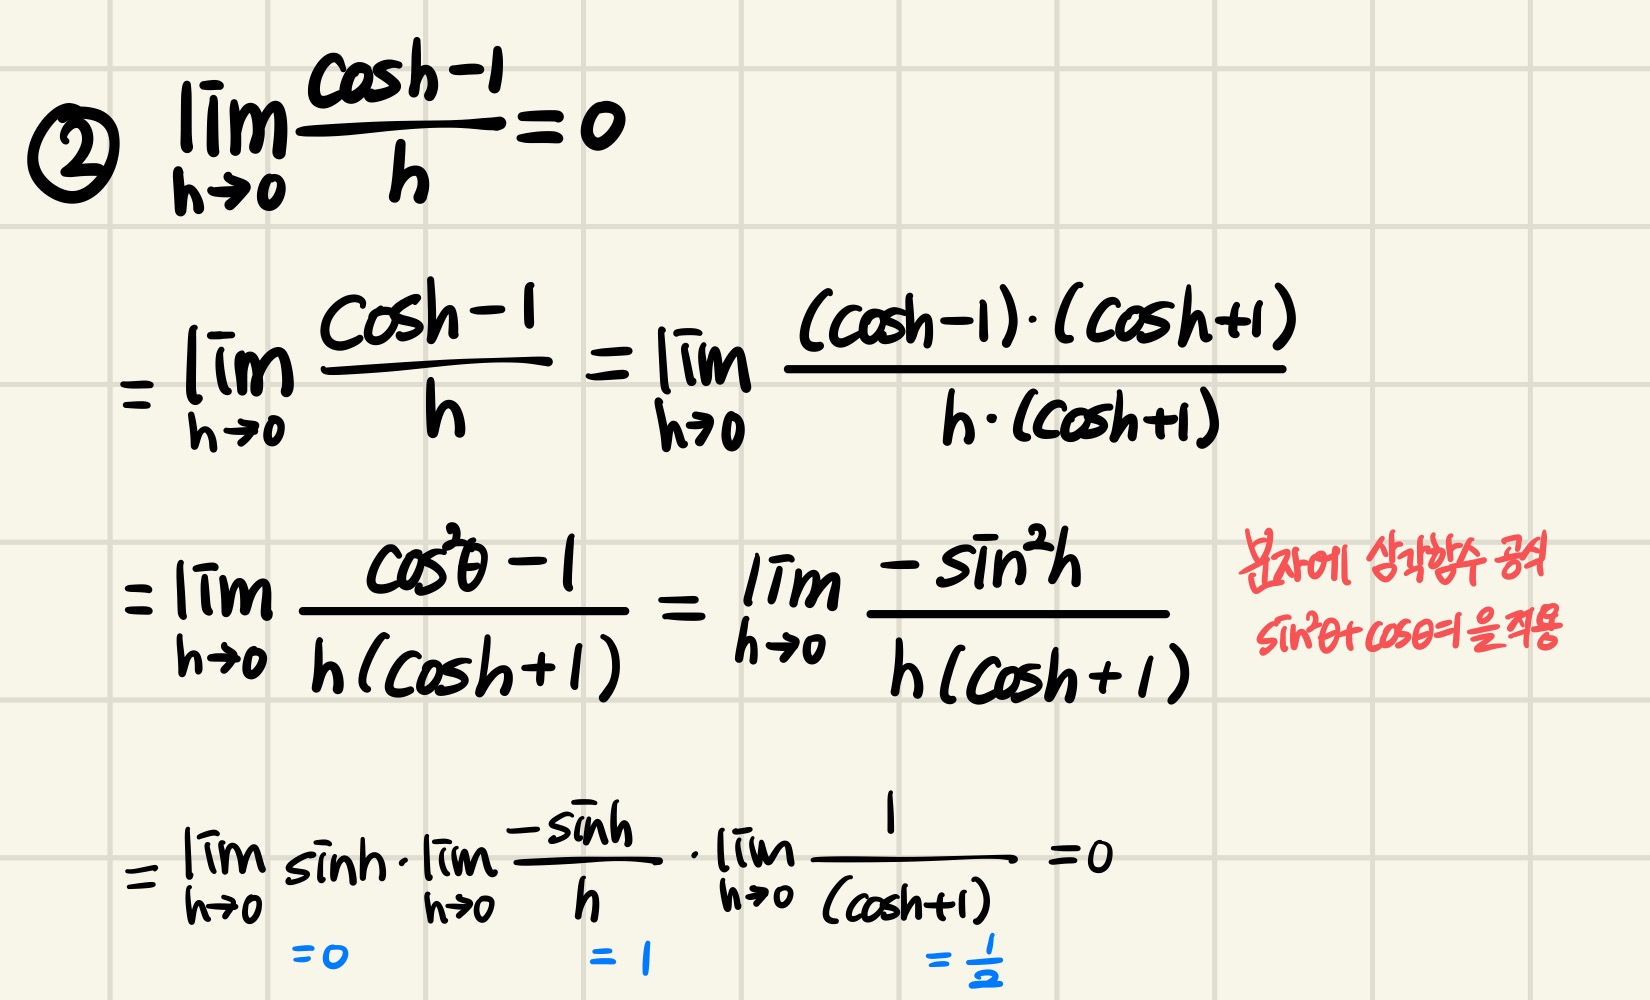 ② lim h→0 (cosh-1)/h = 0
= lim h→0 (cosh-1)/h = lim h→0 ((cosh-1)·(cosh+1))/(h·(cosh+1))
= lim h→0 (cos²θ-1)/(h(cosh+1)) = lim h→0 (-sin²h)/(h(cosh+1))
분자에 삼각함수 공식
sin²θ+cosθ=1을 적용
= lim h→0 sinh · lim h→0 (-sinh)/h · lim h→0 1/(cosh+1) = 0
=0 =1 =1/2